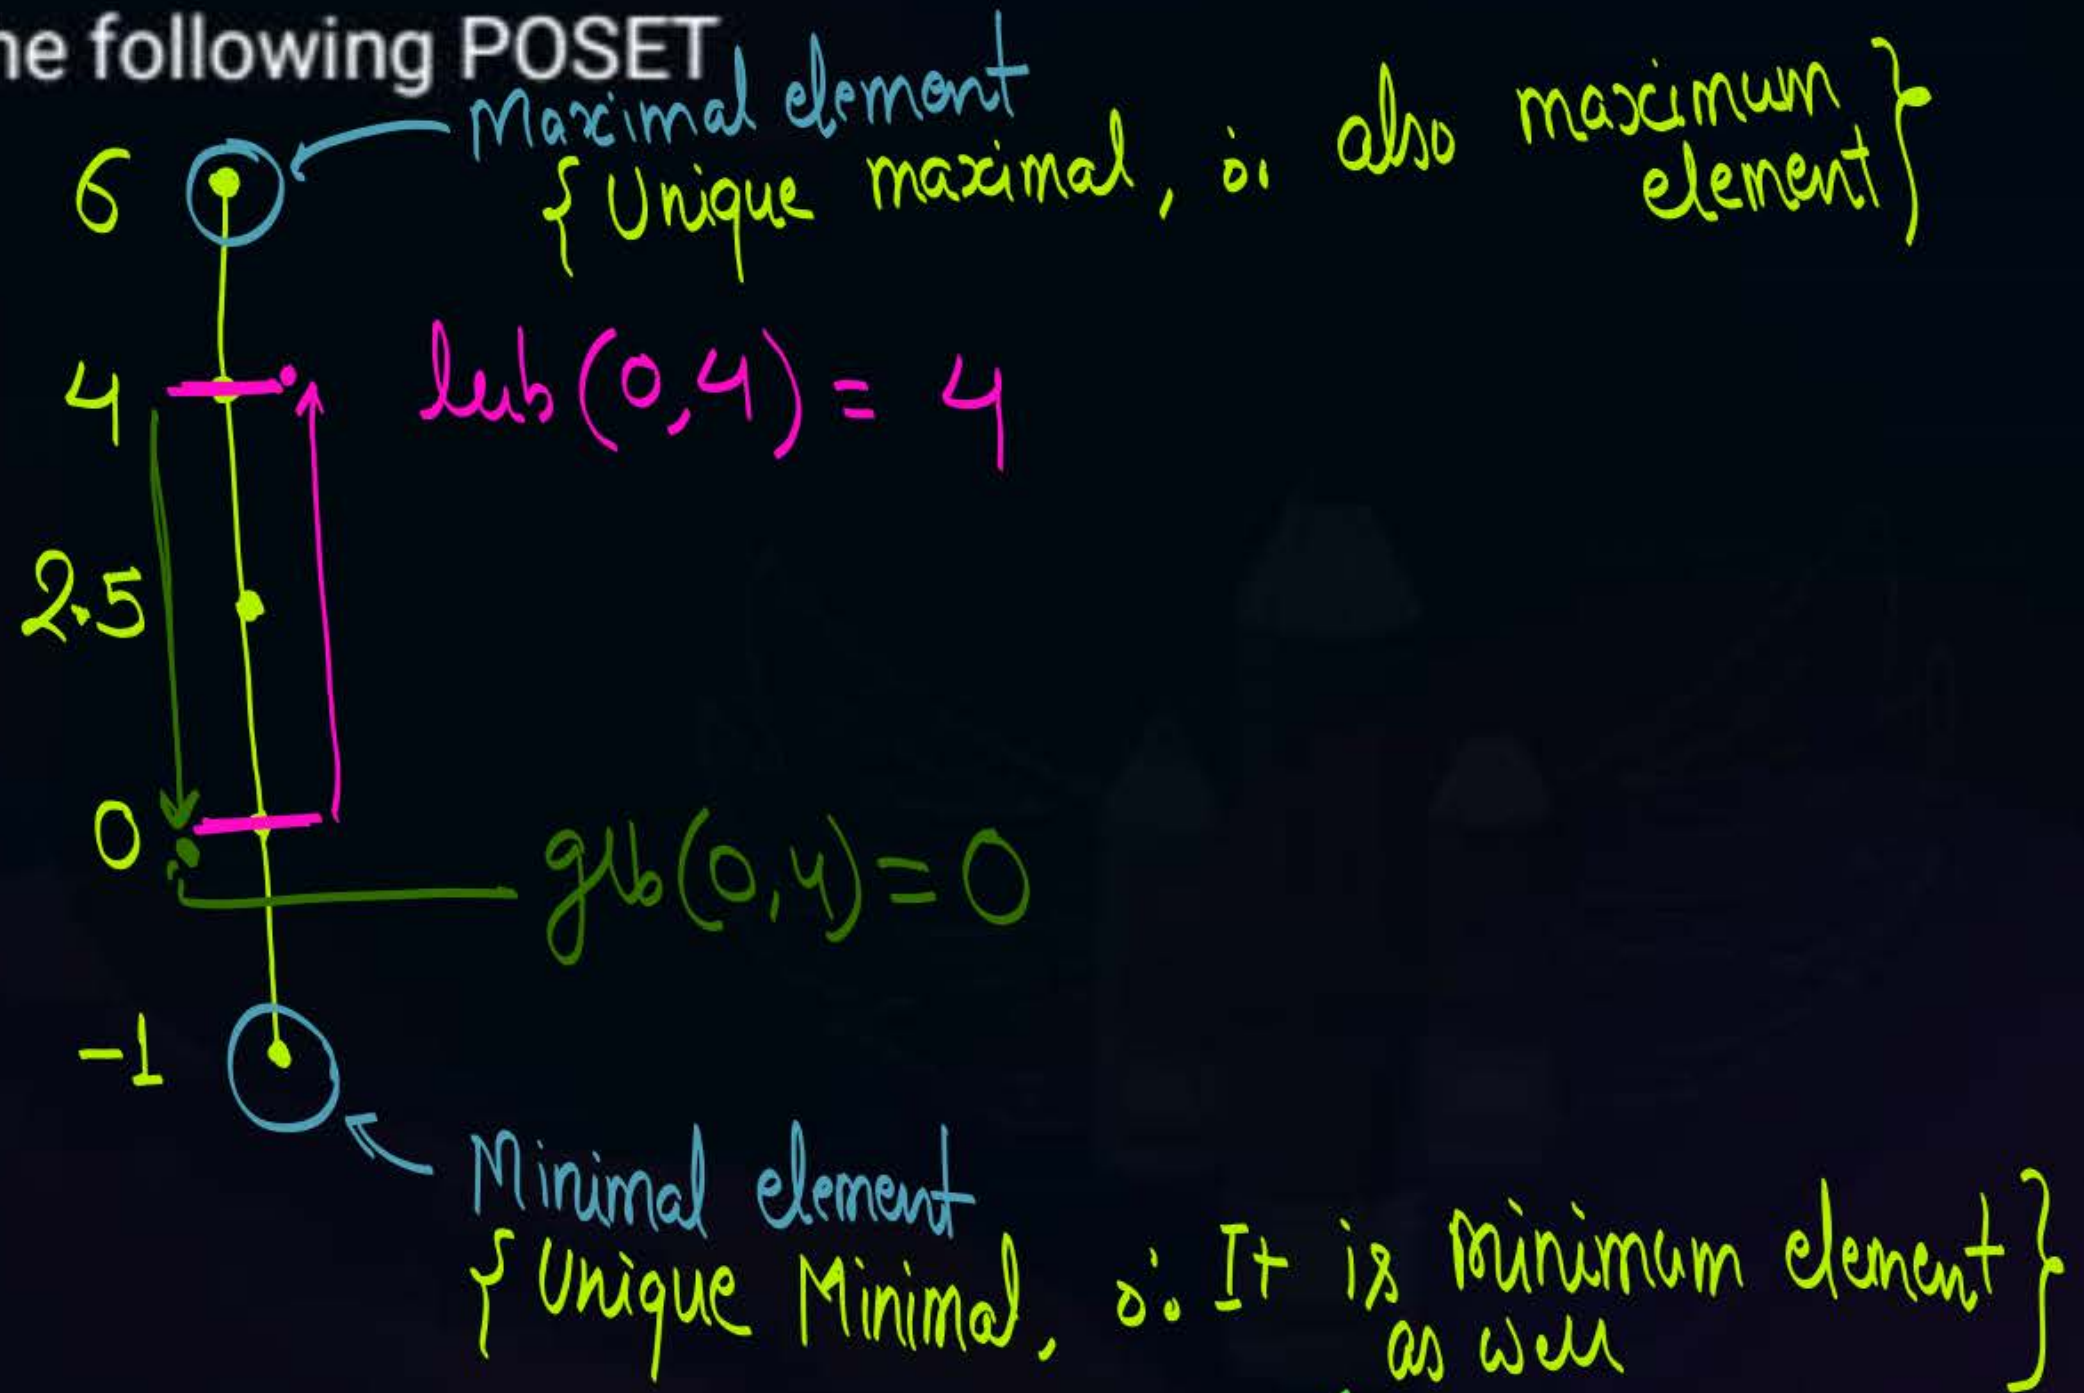 he following POSET
Maximal element
{Unique maximal, ∴ also maximum
element}
6
4
lub(0,4) = 4
2.5
0
glb(0,4) = 0
-1
Minimal element
{Unique Minimal, ∴ It is minimum element}
as well